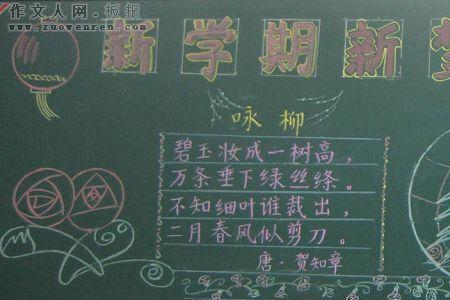 作文人网·板报
www.zuowenren.com
新学期新
咏柳
碧玉妆成一树高，
万条垂下绿丝绦。
不知细叶谁裁出，
二月春风似剪刀。
唐·贺知章